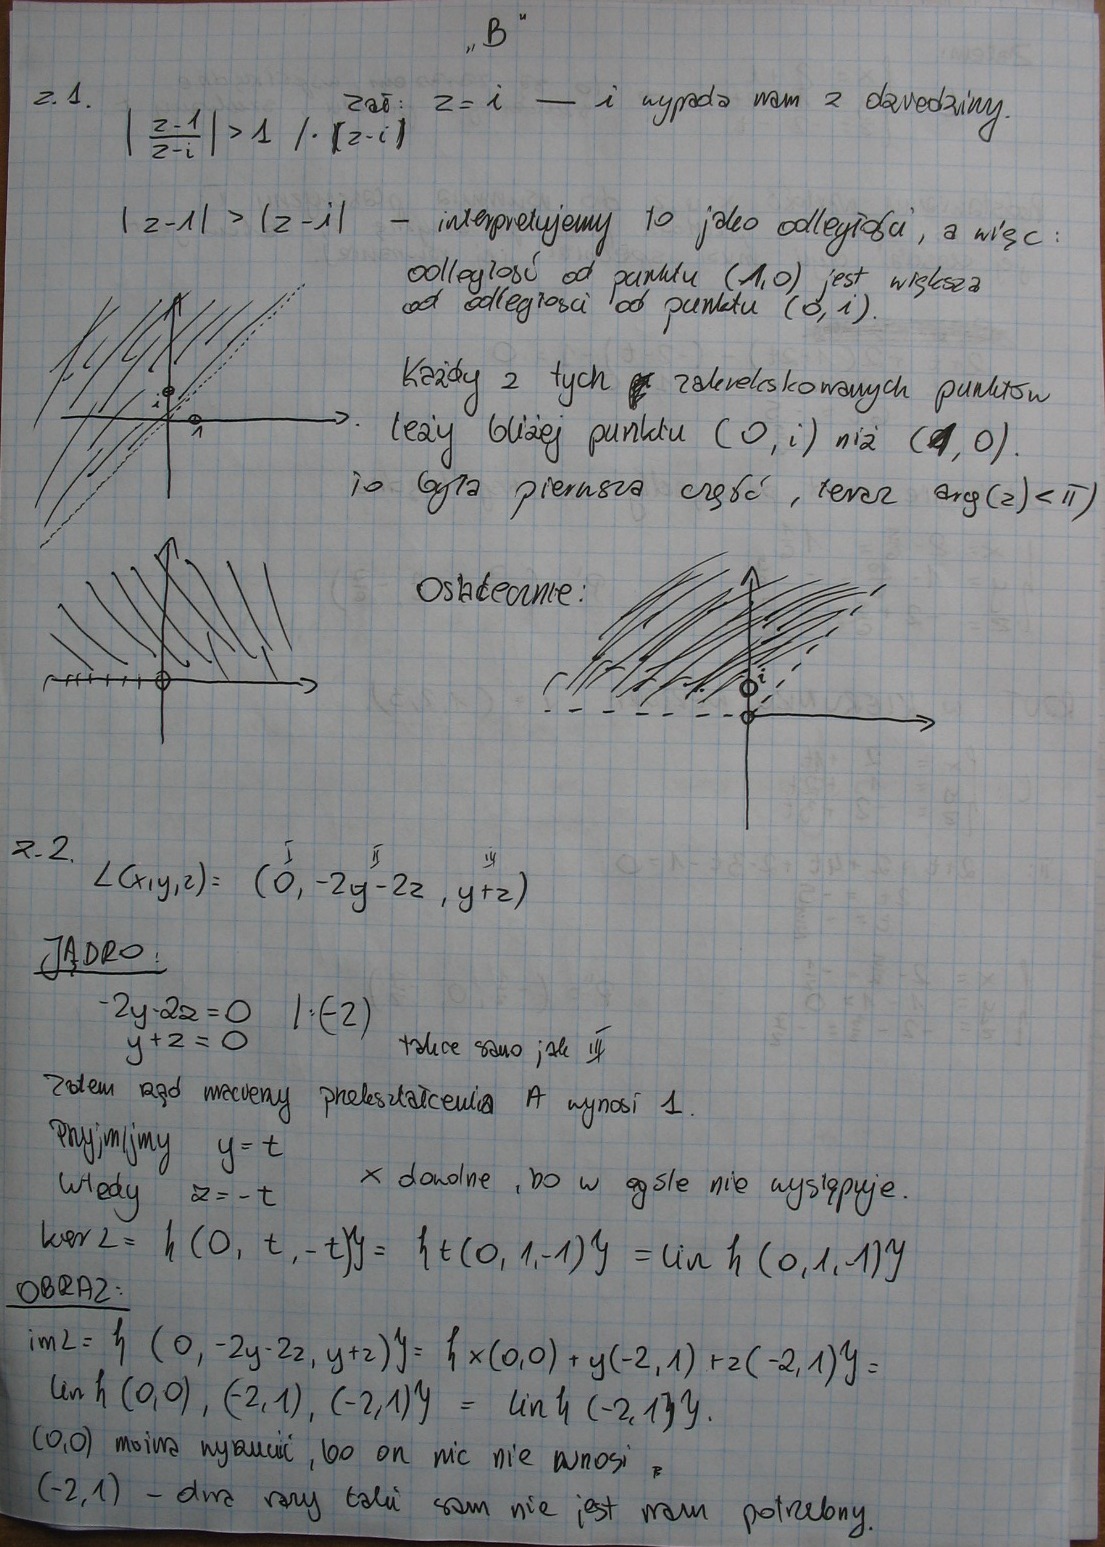 „B"
z.1. zał: z = i — i wypada nam z dziedziny.
| z-1 / z-i | > 1 / · |z-i|
|z-1| > |z-i| – interpretujemy to jako odległości, a więc:
odległość od punktu (1,0) jest większa
od odległości od punktu (0,i).
i
1
Każdy z tych zakreskowanych punktów
leży bliżej punktu (0,i) niż (1,0).
to była pierwsza część, teraz arg(z) < π)
Ostatecznie:
i
z.2.
I II III
L(x,y,z) = (0, -2y-2z, y+z)
JĄDRO:
-2y-2z = 0 /:(-2)
y+z = 0 takie samo jak III
Zatem rząd macierzy przekształcenia A wynosi 1.
Przyjmijmy y = t
Wtedy z = -t x dowolne, bo w ogóle nie występuje.
ker L = {(0, t, -t)} = {t(0,1,-1)} = lin {(0,1,-1)}
OBRAZ:
im L = {(0, -2y-2z, y+z)} = {x(0,0) + y(-2,1) + z(-2,1)} =
lin {(0,0), (-2,1), (-2,1)} = lin {(-2,1)}.
(0,0) można wyrzucić, bo on nic nie wnosi.
(-2,1) – dwa razy taki sam nie jest nam potrzebny.